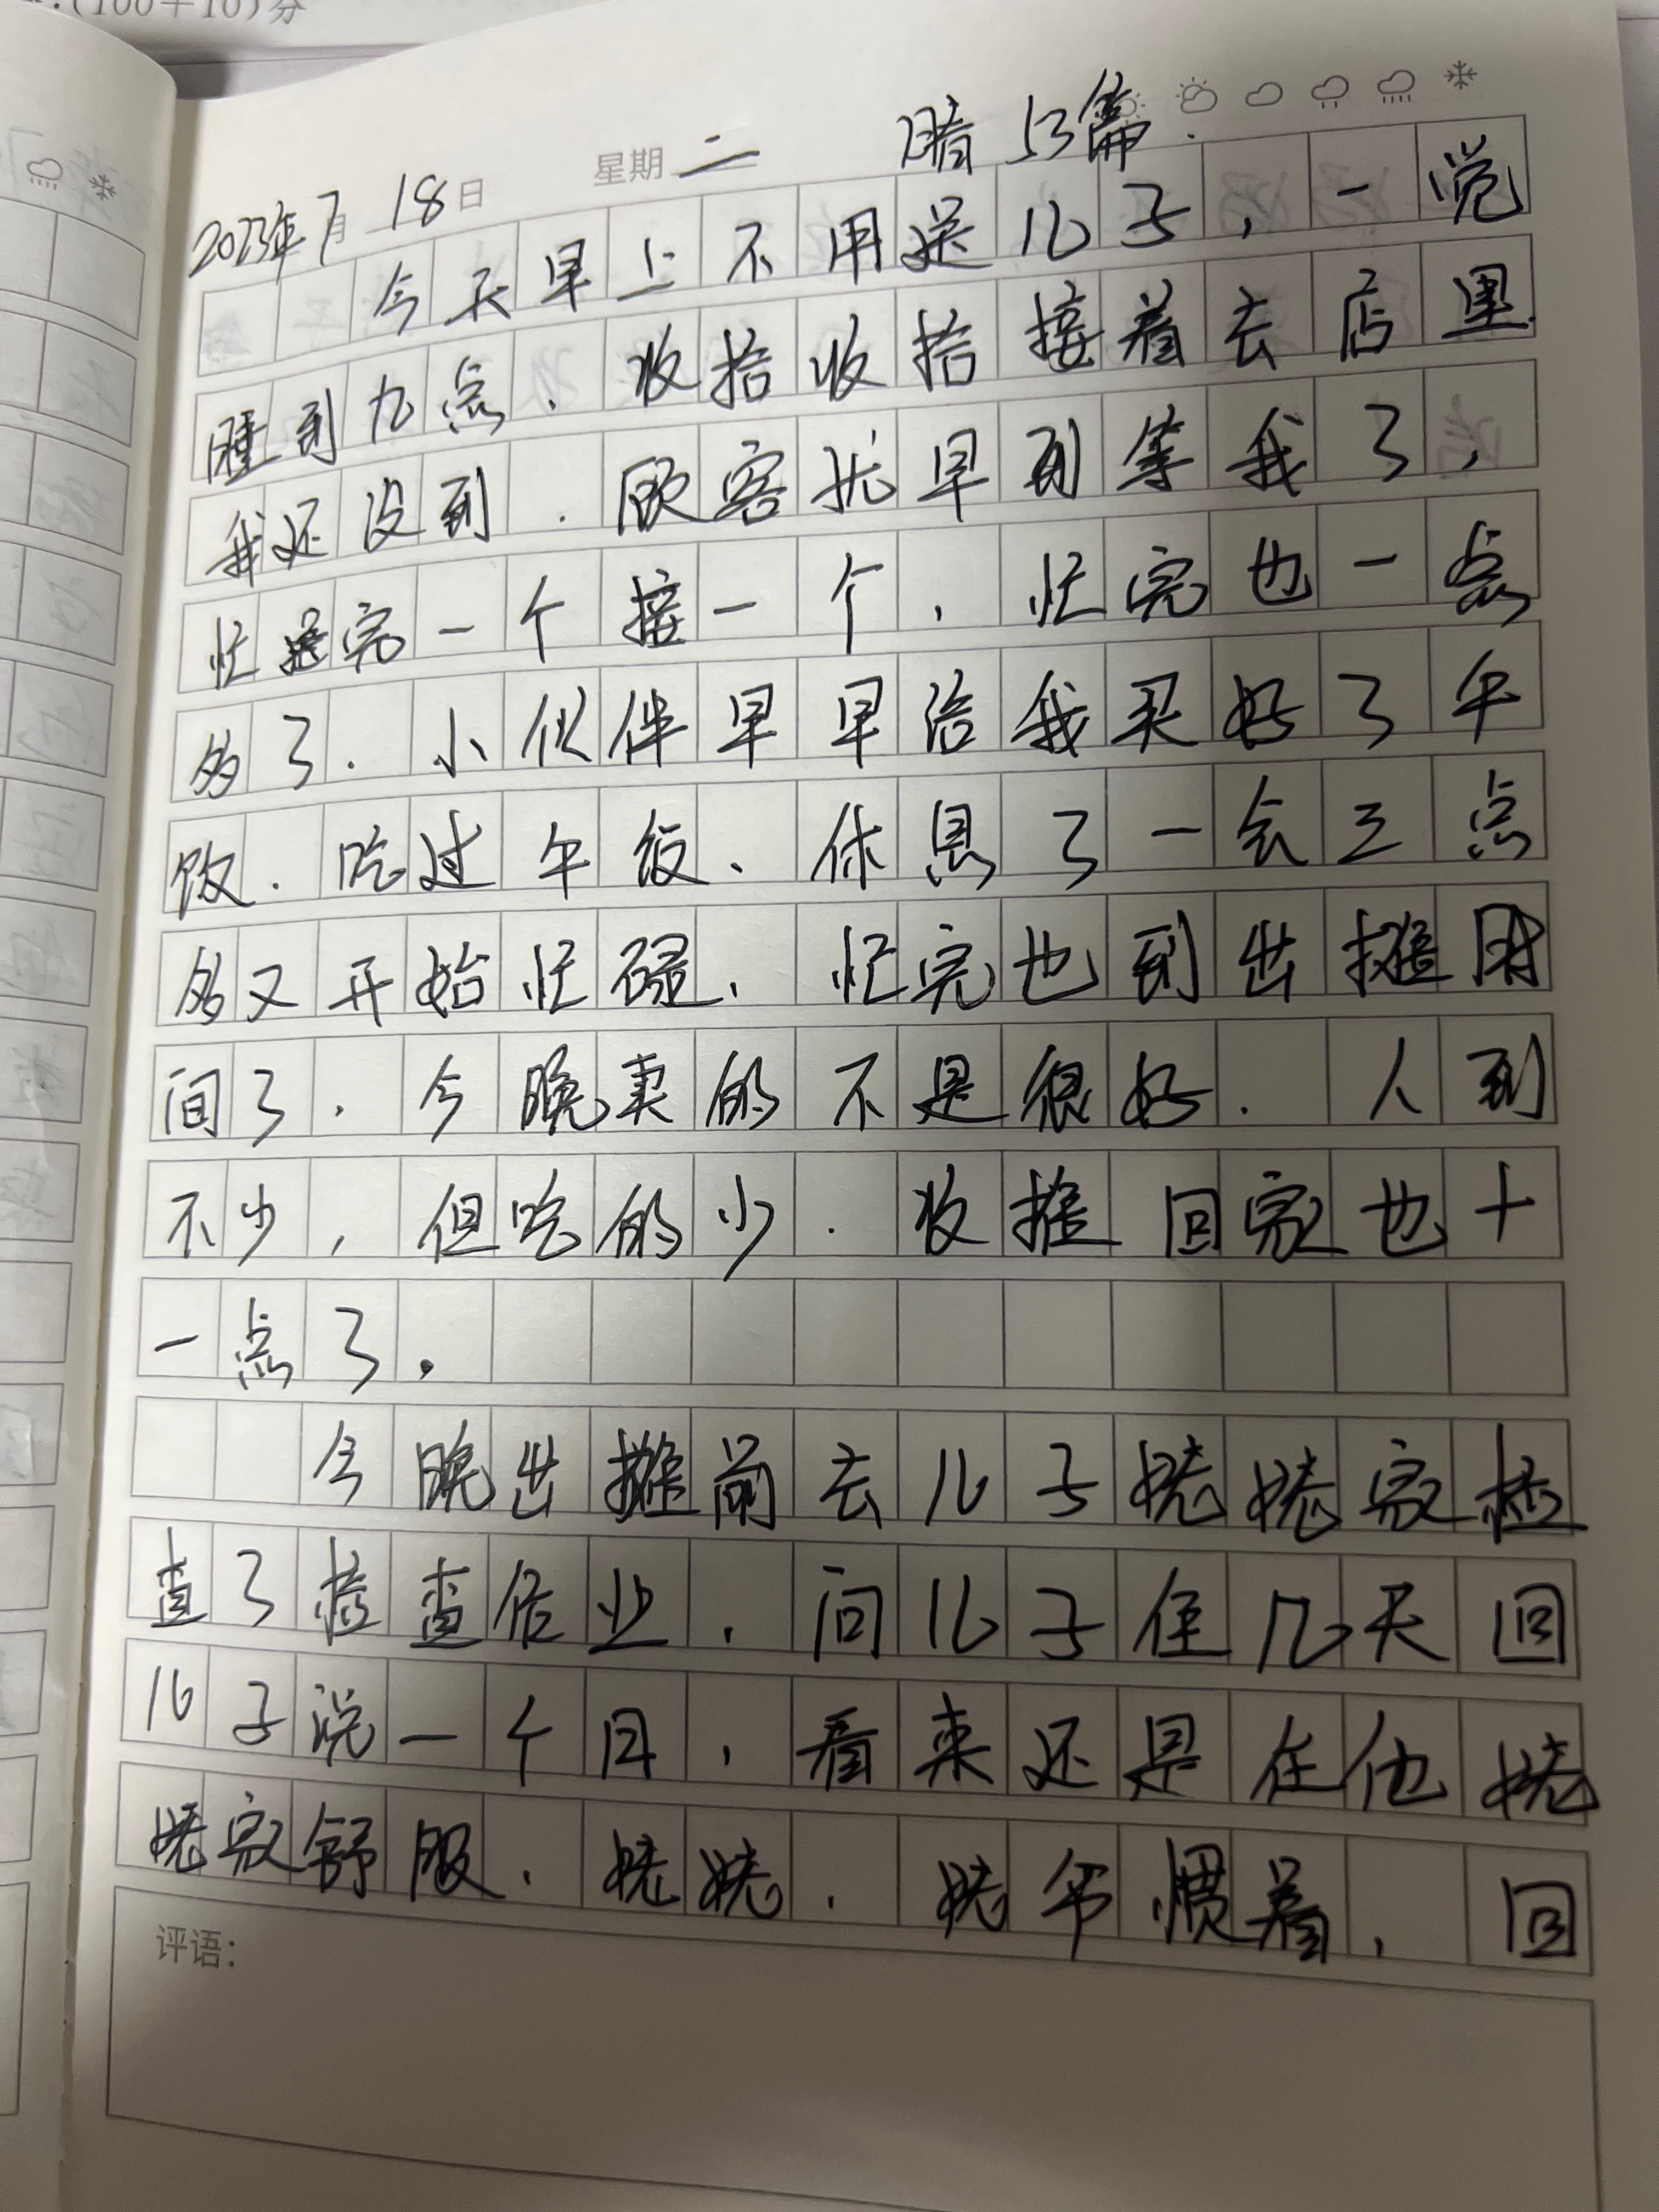 :(100+10)分
2023年7月18日 星期二 晴 53篇.
今天早上不用送儿子,一觉
睡到九点.收拾收拾接着去店里.
我还没到.顾客就早到等我了,
忙完一个接一个,忙完也一点
多了.小伙伴早早给我买好了午
饭.吃过午饭.休息了一会三点
多又开始忙碌、忙完也到出摊时
间了.今晚卖的不是很好.人到
不少,但吃的少.收摊回家也十
一点了.
今晚出摊前去儿子姥姥家检
查了检查作业,问儿子住几天回
儿子说一个月,看来还是在他姥
姥家舒服.姥姥.姥爷惯着,回
评语: